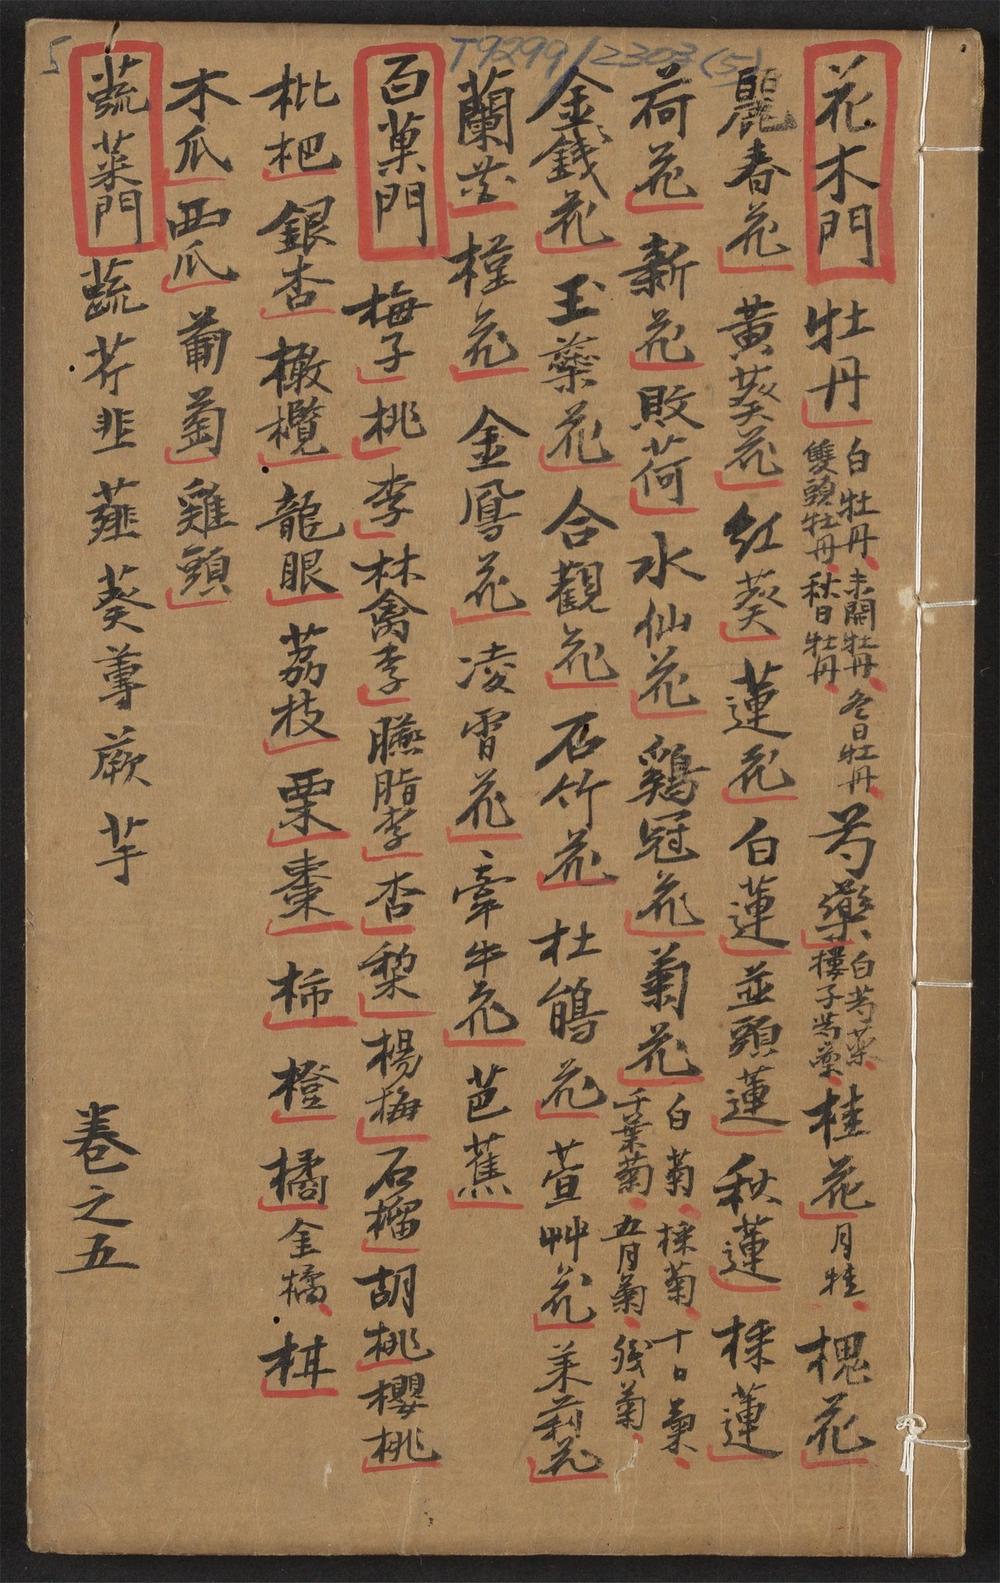 T9299/2303(5)
5
花木門 牡丹 白牡丹 未開牡丹 冬日牡丹 雙頭牡丹 秋日牡丹 芍藥 白芍藥 樓子芍藥 桂花 月桂 槐花
麗春花 黃葵花 紅葵 蓮花 白蓮 並頭蓮 秋蓮 採蓮
荷花 新花 敗荷 水仙花 鷄冠花 菊花 白菊 採菊 十日菊 千葉菊 五月菊 殘菊
金錢花 玉藥花 合觀花 石竹花 杜鵑花 萱艸花 茉莉花
蘭花 槿花 金鳳花 凌霄花 牽牛花 芭蕉
百菓門 梅子 桃 李 林禽李 臙脂李 杏 梨 楊梅 石榴 胡桃 櫻桃
枇杷 銀杏 橄欖 龍眼 荔枝 栗 棗 柿 橙 橘 金橘
木瓜 西瓜 葡萄 雞頭
蔬菜門 蔬 芥 韭 薤 葵 蓴 蕨 芋
卷之五